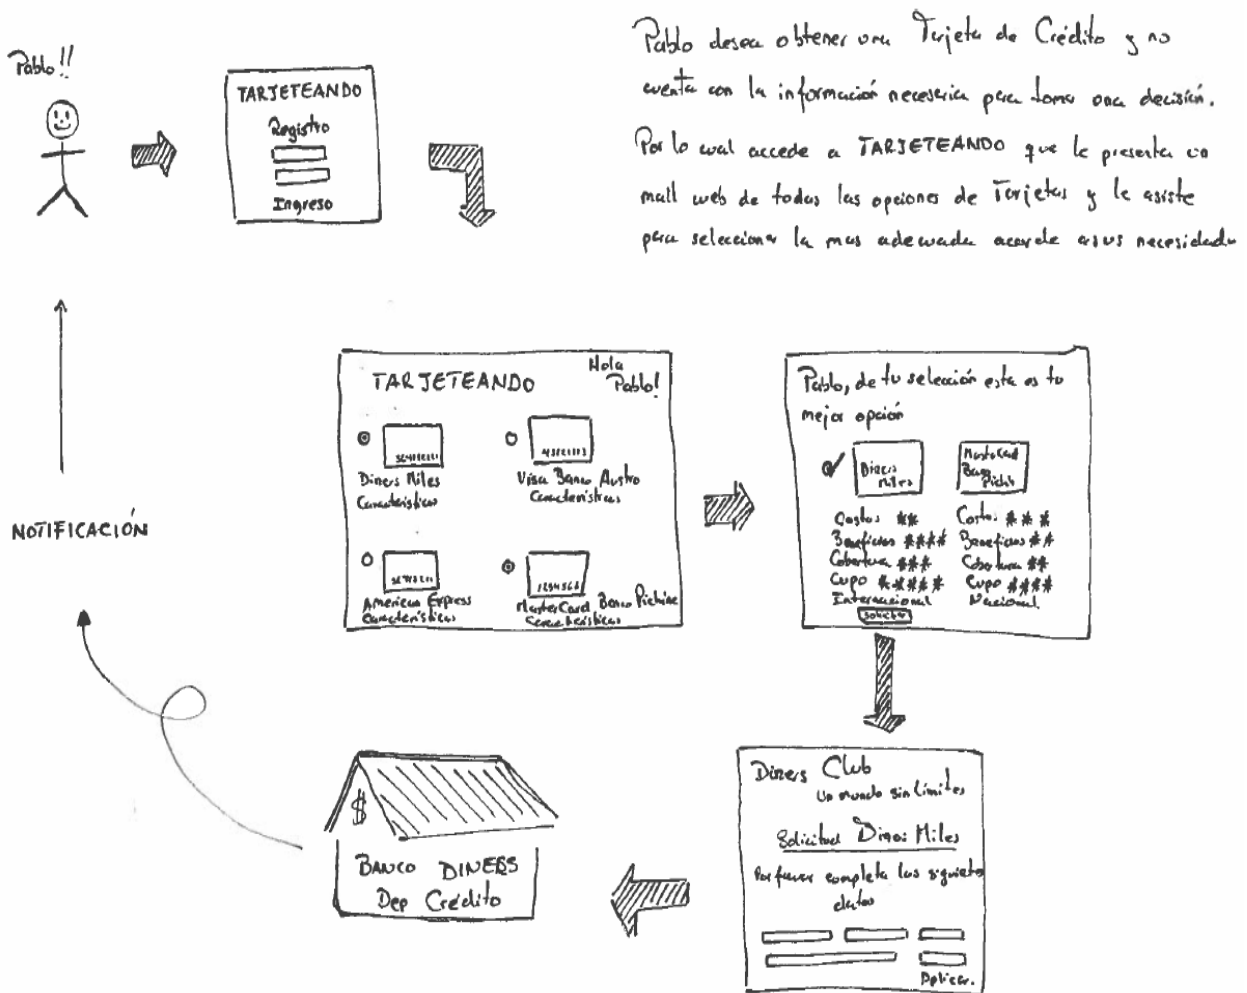 Pablo!!
TARJETEANDO
Registro
Ingreso
Pablo desea obtener una Tarjeta de Crédito y no
cuenta con la información necesaria para tomar una decisión.
Por lo cual accede a TARJETEANDO que le presenta un
mall web de todas las opciones de Tarjetas y le asiste
para seleccionar la mas adecuada acorde a sus necesidades
TARJETEANDO
Hola
Pablo!
Diners Miles
Características
Visa Banco Austro
Características
American Express
Características
1234568
MasterCard Banco Pichinc
Características
Pablo, de tu selección esta es tu
mejor opción
Diners
Miles
MasterCard
Banco
Pichin
Costos **
Beneficios ****
Cobertura ***
Cupo *****
Internacional
Solicitar
Costos ***
Beneficios **
Cobertura **
Cupo ****
Nacional
Diners Club
Un mundo sin límites
Solicitud Diners Miles
Por favor completa los siguientes
datos
Aplicar.
$
BANCO DINERS
Dep Crédito
NOTIFICACIÓN